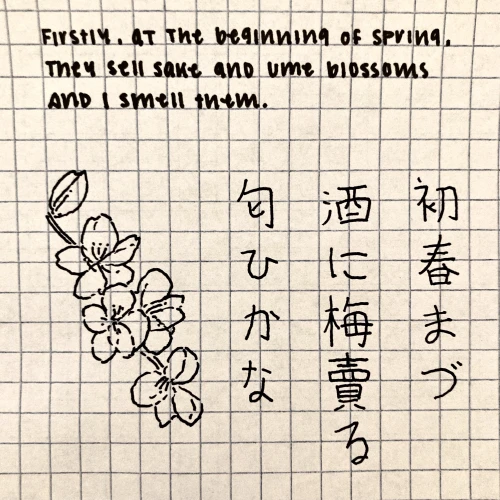 Firstly, at the beginning of spring,
they sell sake and ume blossoms
and I smell them.
初春まづ
酒に梅賣る
匂ひかな